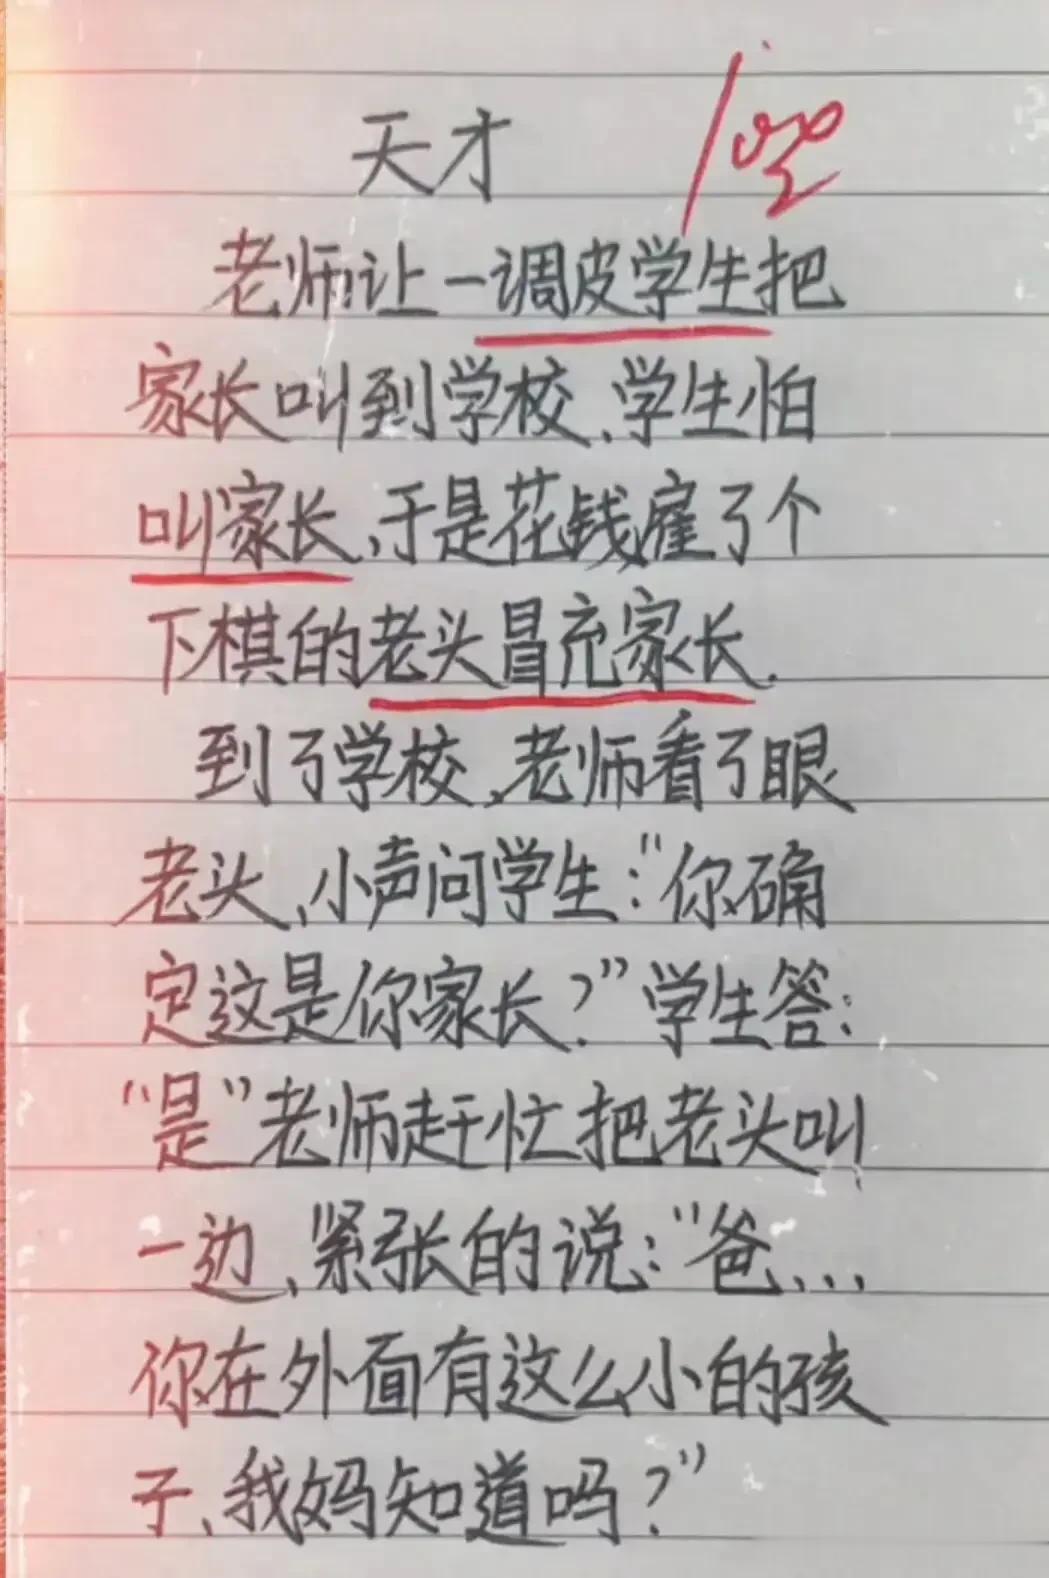 天才
100
老师让一调皮学生把
家长叫到学校、学生怕
叫家长、于是花钱雇了个
下棋的老头冒充家长.
到了学校、老师看了眼
老头、小声问学生:“你确
定这是你家长?”学生答:
“是”老师赶忙把老头叫
一边、紧张的说:“爸...
你在外面有这么小的孩
子、我妈知道吗?”